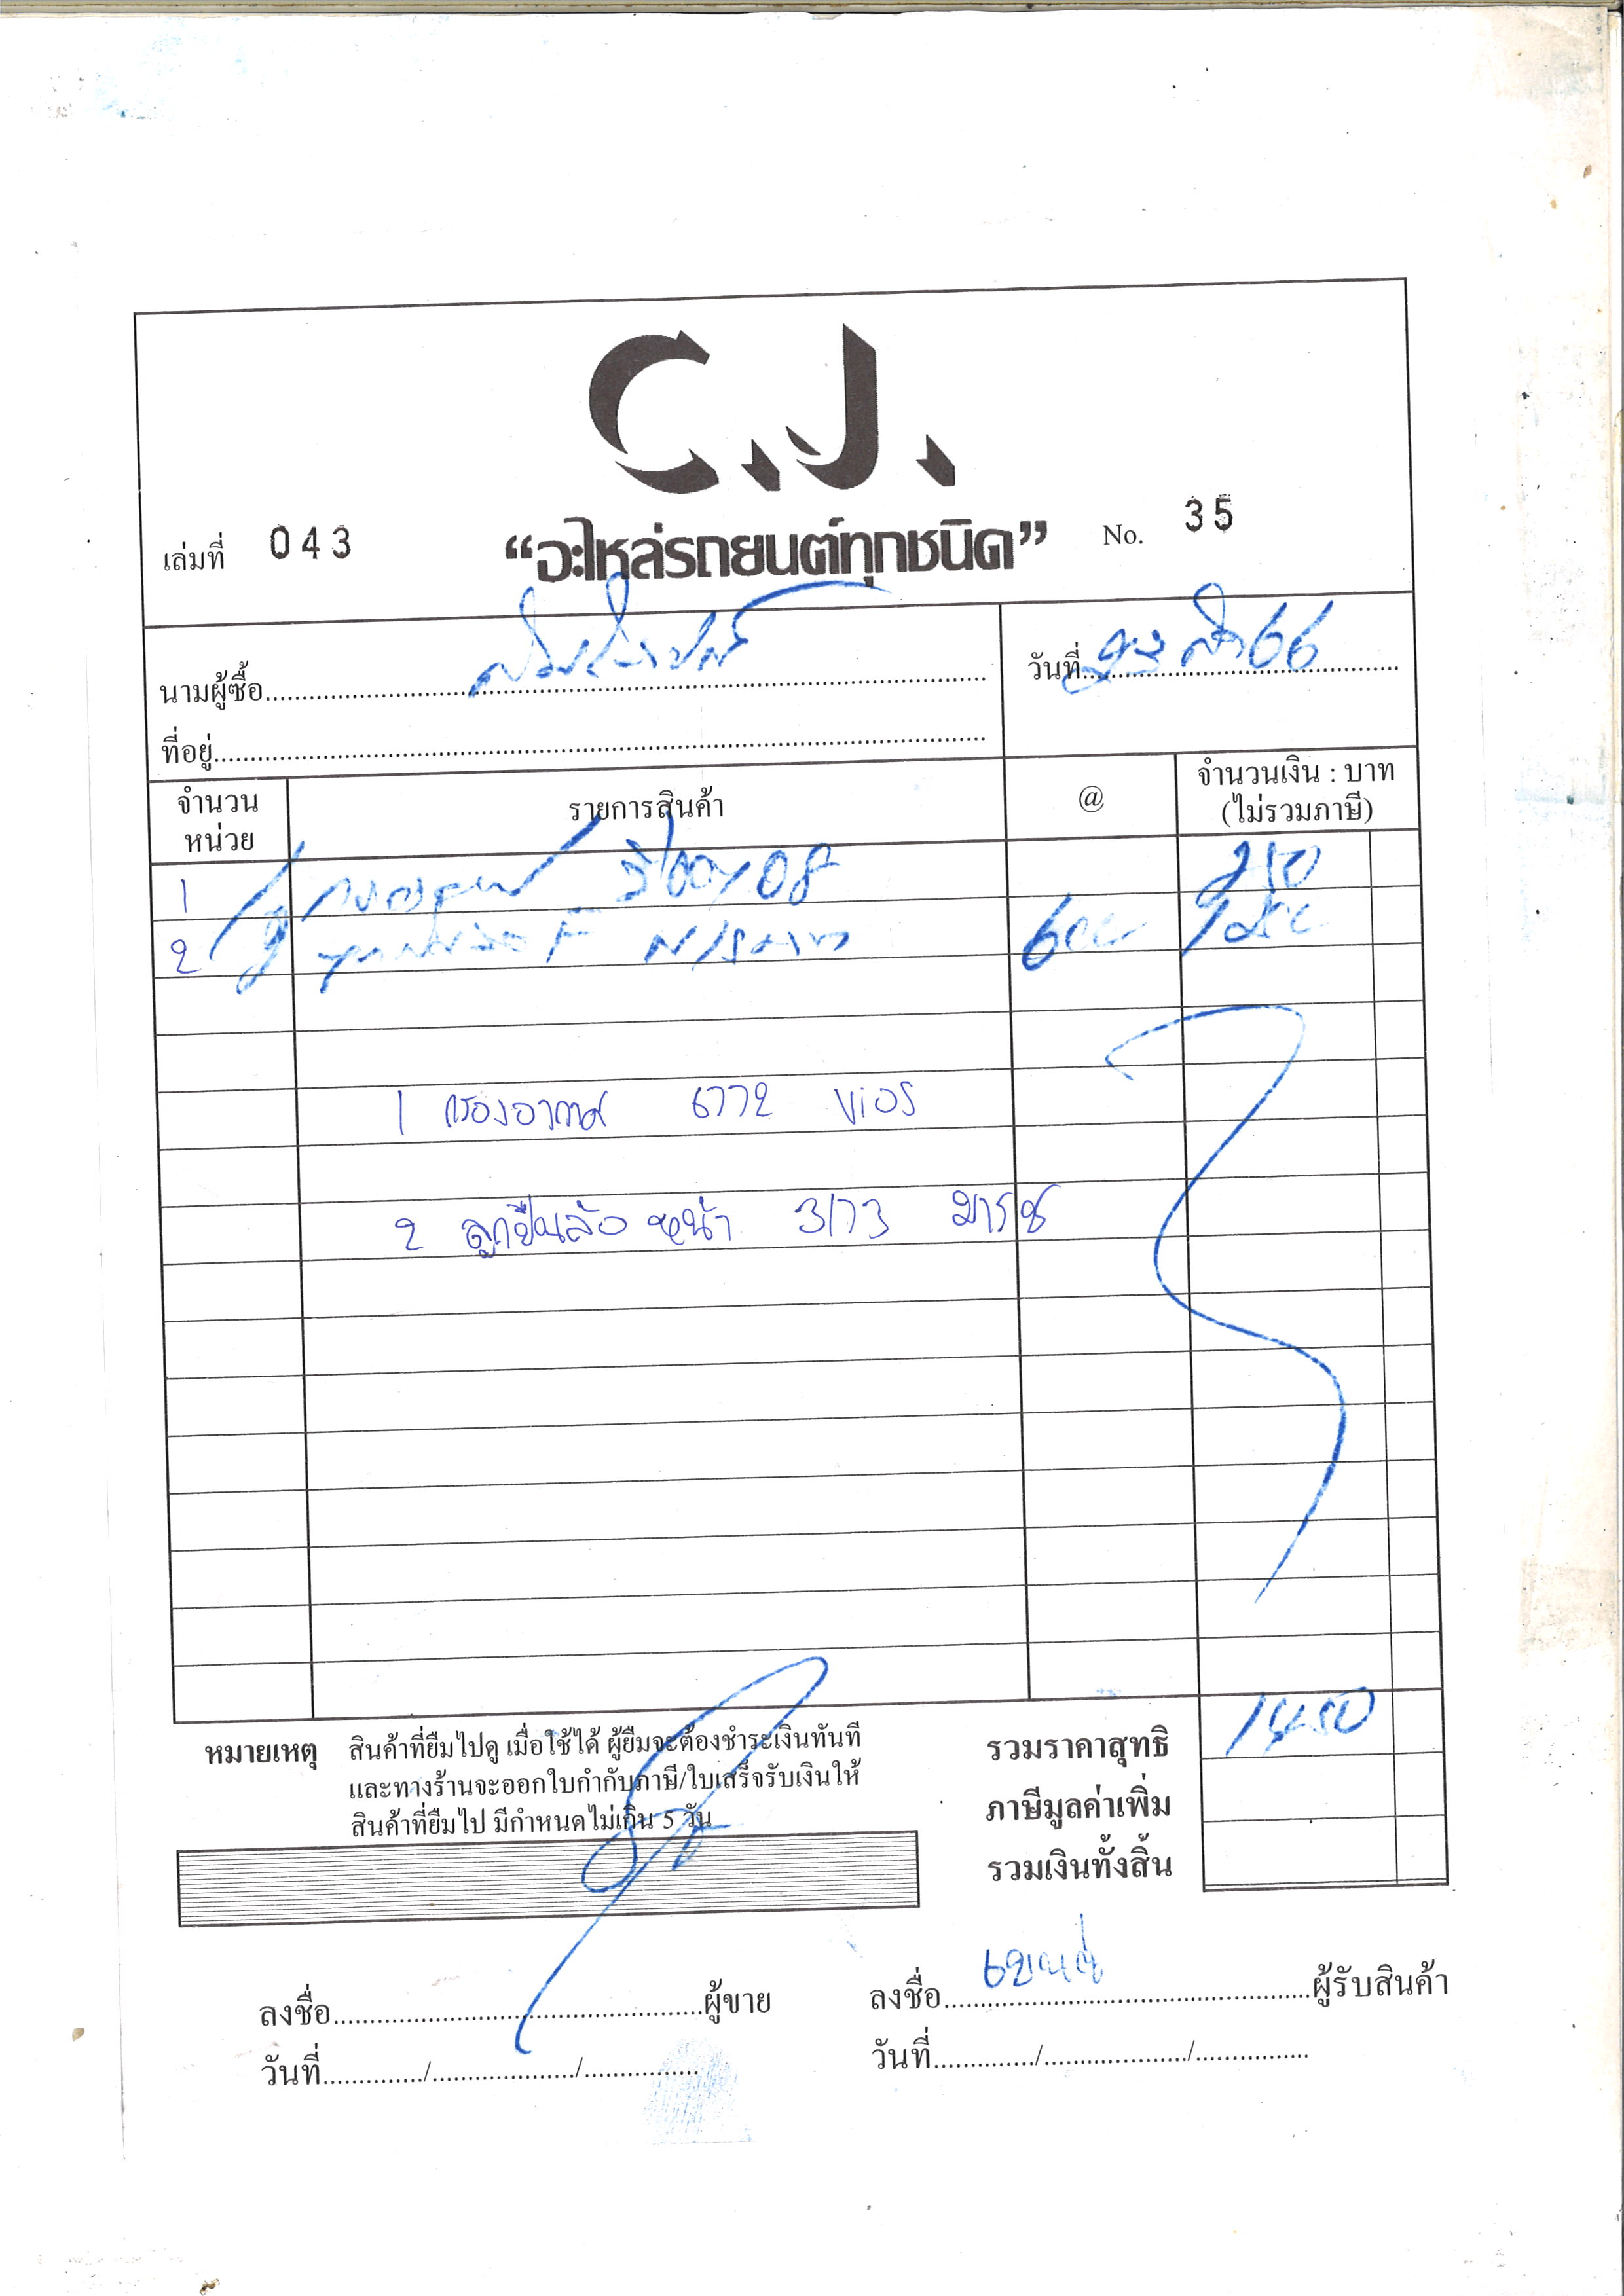 C.J.
เล่มที่ 043 “อะไหล่รถยนต์ทุกชนิด” No. 35
นามผู้ซื้อ
วันที่ 66
ที่อยู่
จำนวน หน่วย รายการสินค้า @ จำนวนเงิน : บาท (ไม่รวมภาษี)
1 08 250
2 F 600
1 กรองอากาศ 6772 Vios
2 ลูกปืนล้อ หน้า 3173 มารช์
หมายเหตุ สินค้าที่ยืมไปดู เมื่อใช้ได้ ผู้ยืมจะต้องชำระเงินทันที
และทางร้านจะออกใบกำกับภาษี/ใบเสร็จรับเงินให้
สินค้าที่ยืมไป มีกำหนดไม่เกิน 5 วัน
รวมราคาสุทธิ 1450
ภาษีมูลค่าเพิ่ม
รวมเงินทั้งสิ้น
ลงชื่อ ผู้ขาย
ลงชื่อ ผู้รับสินค้า
วันที่ / /
วันที่ / /